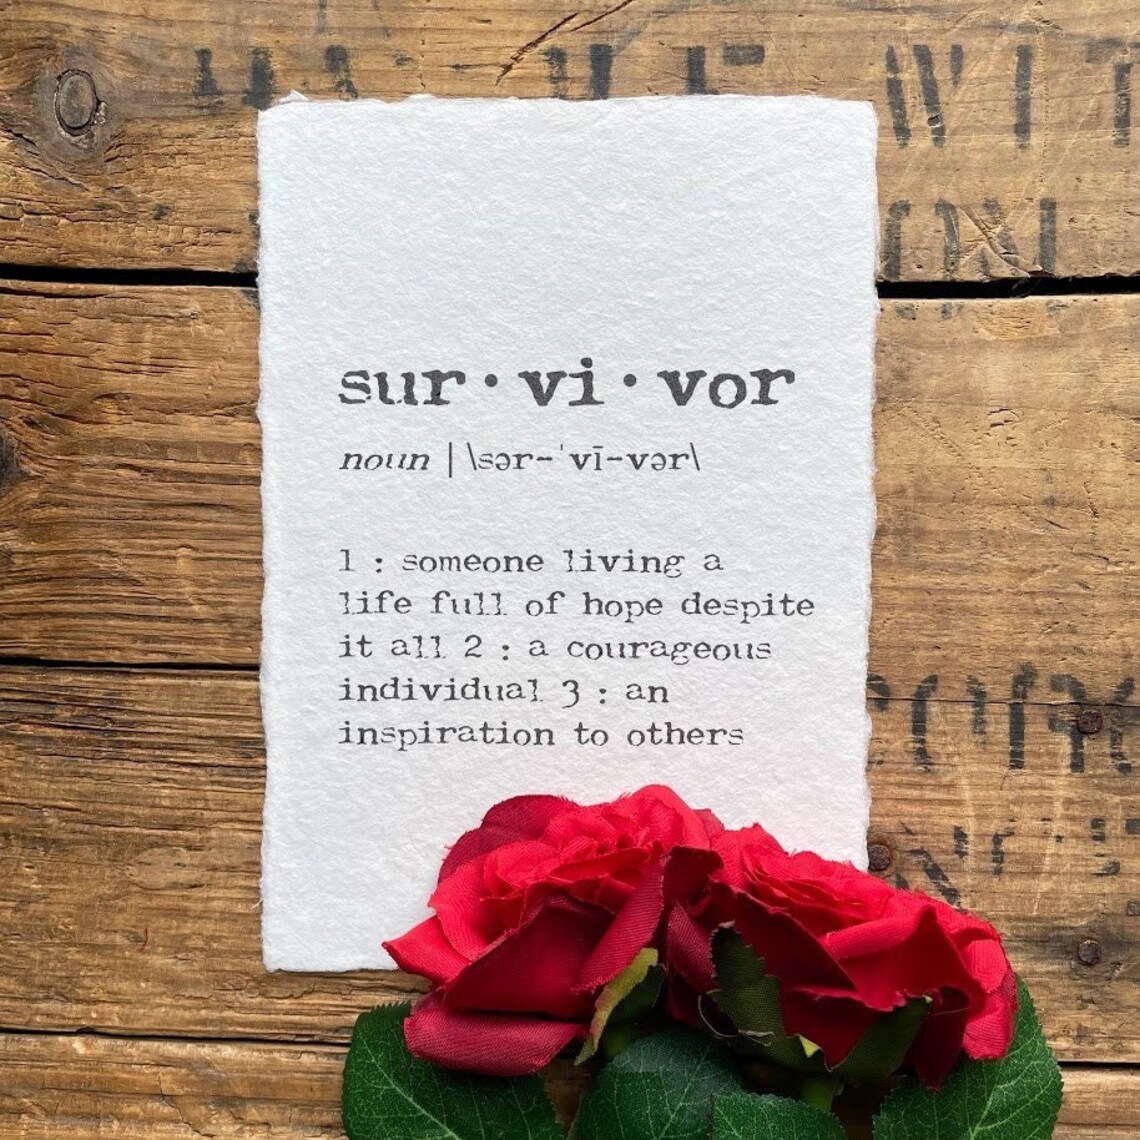 sur·vi·vor
noun | \sər-ˈvī-vər\
1 : someone living a
life full of hope despite
it all 2 : a courageous
individual 3 : an
inspiration to others